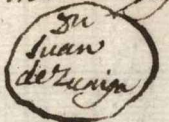 Dn
Juan
de Zuniga